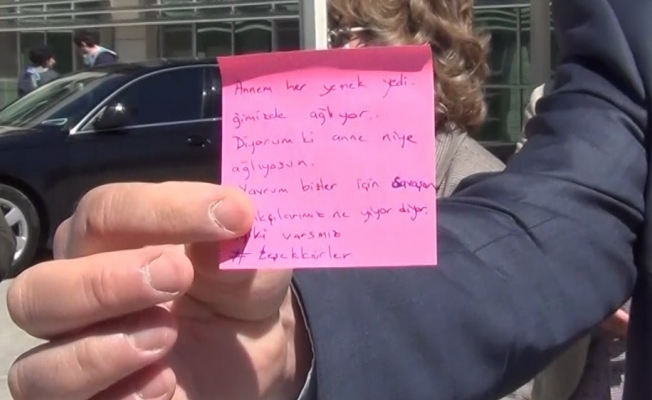 Annem her yemek yedi.
ğimizde ağlıyor..
Diyorum ki anne niye
ağlıyosun.
Yavrum bizler için Savaşan
kçılarımız ne yiyor diyor.
ki varsınız
# teşekkürler